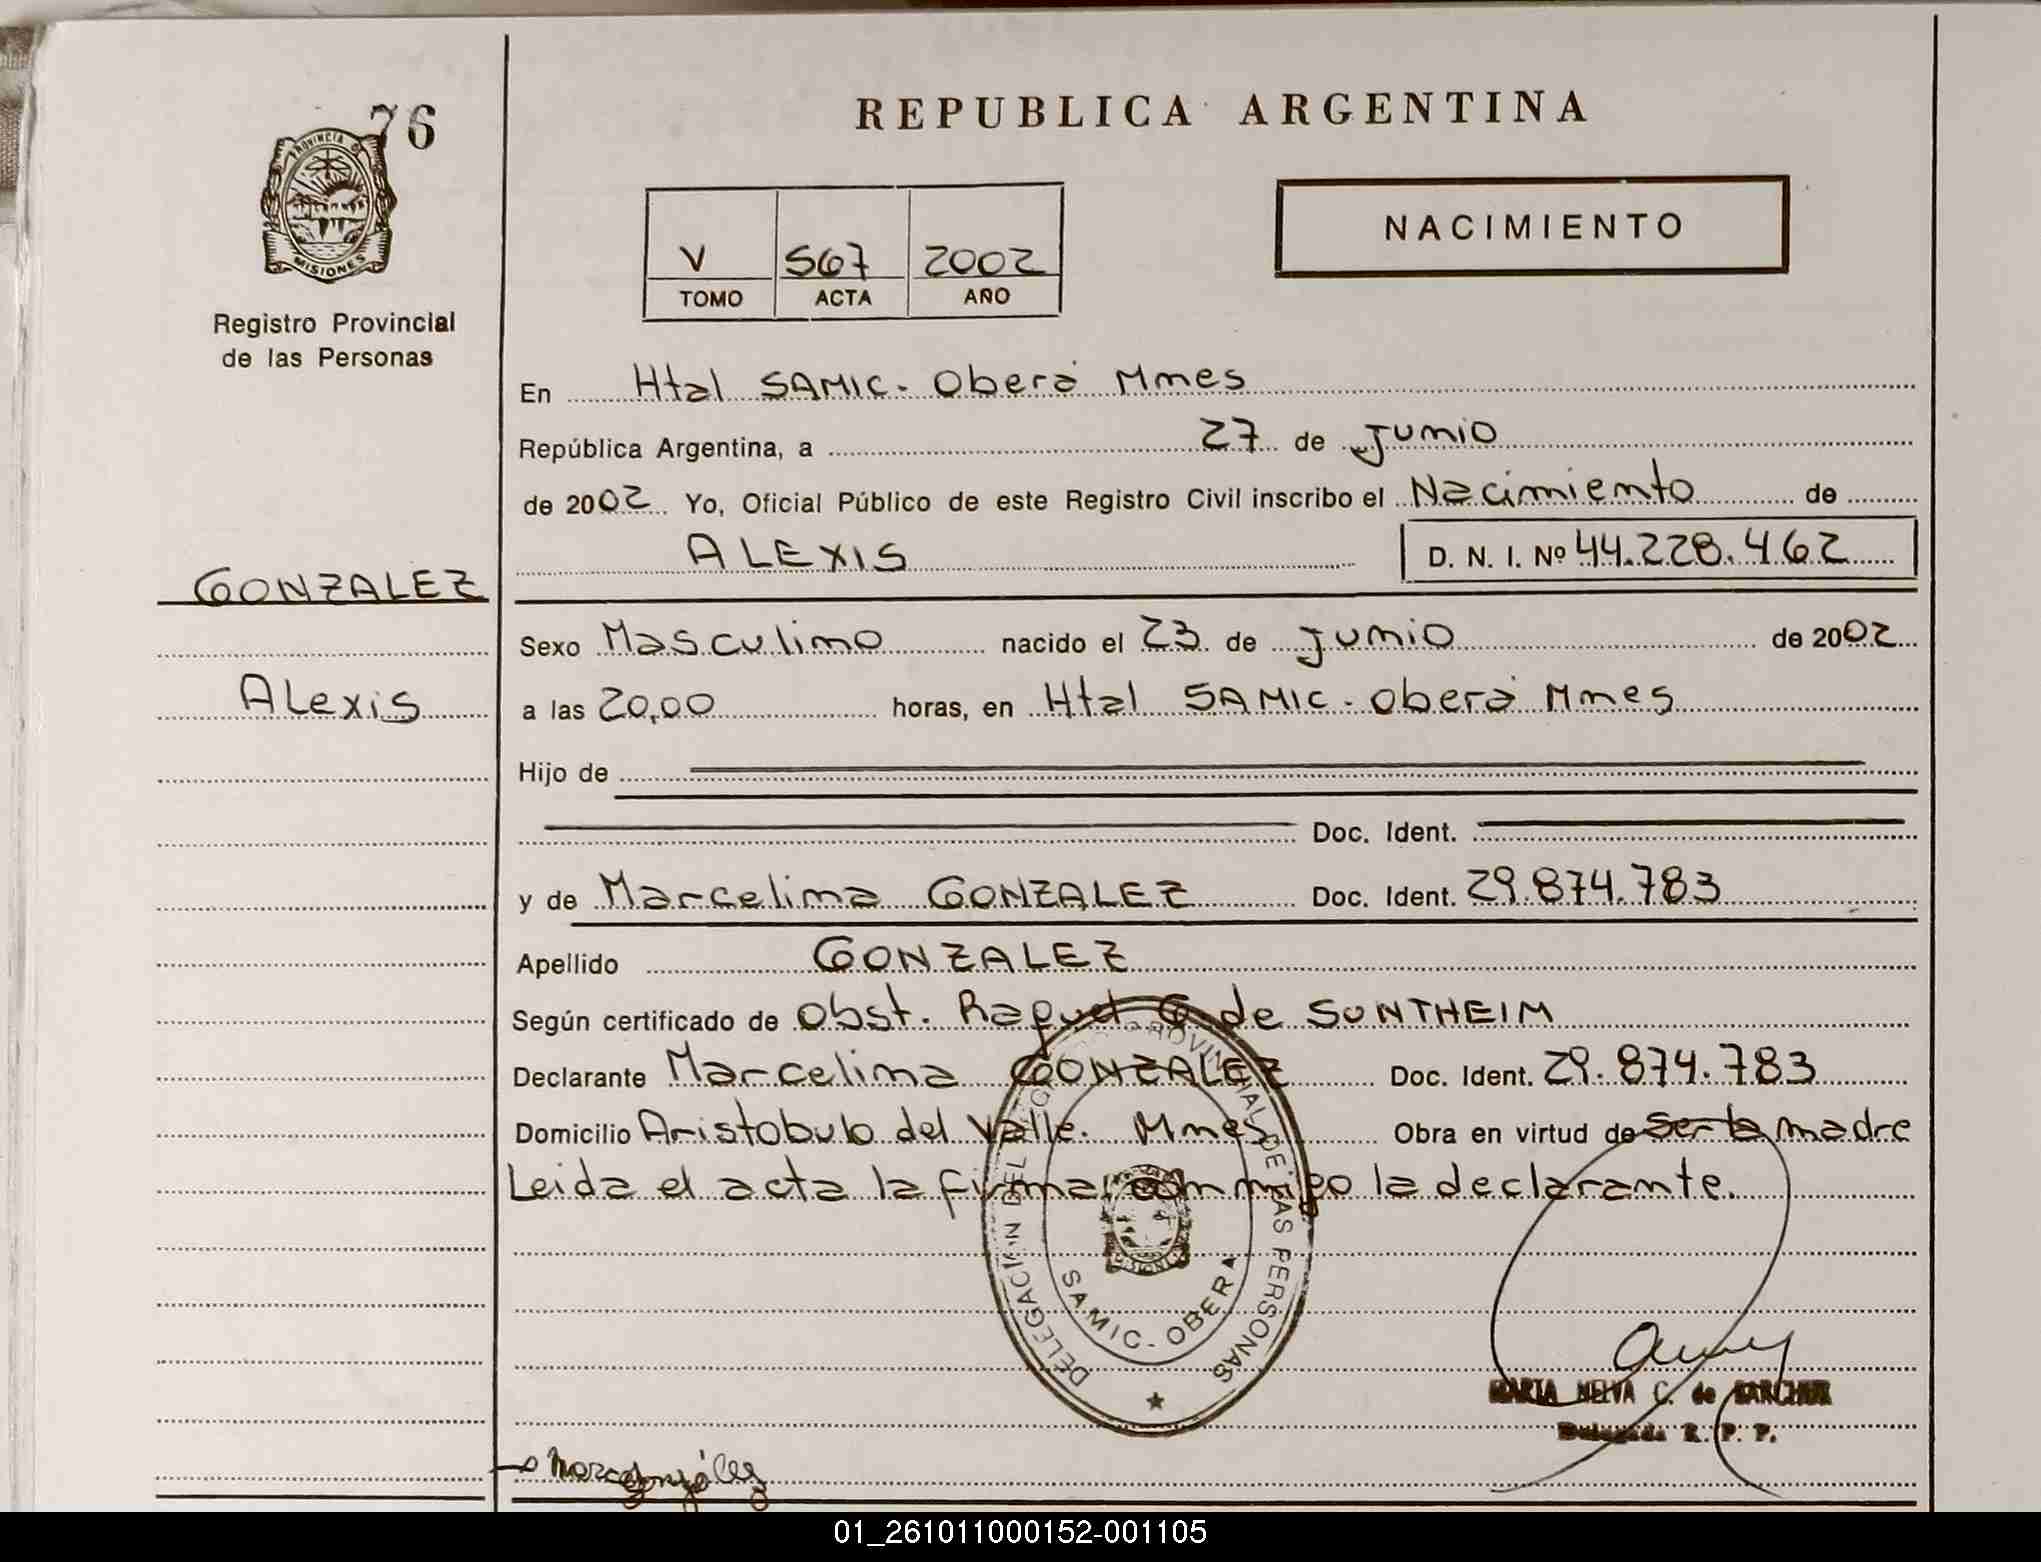 76
PROVINCIA DE
MISIONES
Registro Provincial
de las Personas
REPUBLICA ARGENTINA
V 567 2002
TOMO ACTA AÑO
NACIMIENTO
En Htal SAMIC - Oberá Mnes
República Argentina, a 27 de Junio
de 2002 Yo, Oficial Público de este Registro Civil inscribo el Nacimiento de
ALEXIS D. N. I. Nº 44.228.462
GONZALEZ
Sexo Masculino nacido el 23 de Junio de 2002
Alexis
a las 20,00 horas, en Htal SAMIC - Oberá Mnes
Hijo de
Doc. Ident.
y de Marcelina GONZALEZ Doc. Ident. 29.874.783
Apellido GONZALEZ
Según certificado de Obst. Raquel G de SONTHEIM
Declarante Marcelina GONZALEZ Doc. Ident. 29.874.783
Domicilio Aristobulo del Valle. Mnes Obra en virtud de ser la madre
Leida el acta la firma conmigo la declarante.
DELEGACION DEL REGISTRO PROVINCIAL DE LAS PERSONAS
SAMIC - OBERA
MARIA NELVA C. de
Delegada R. P. P.
01_261011000152-001105